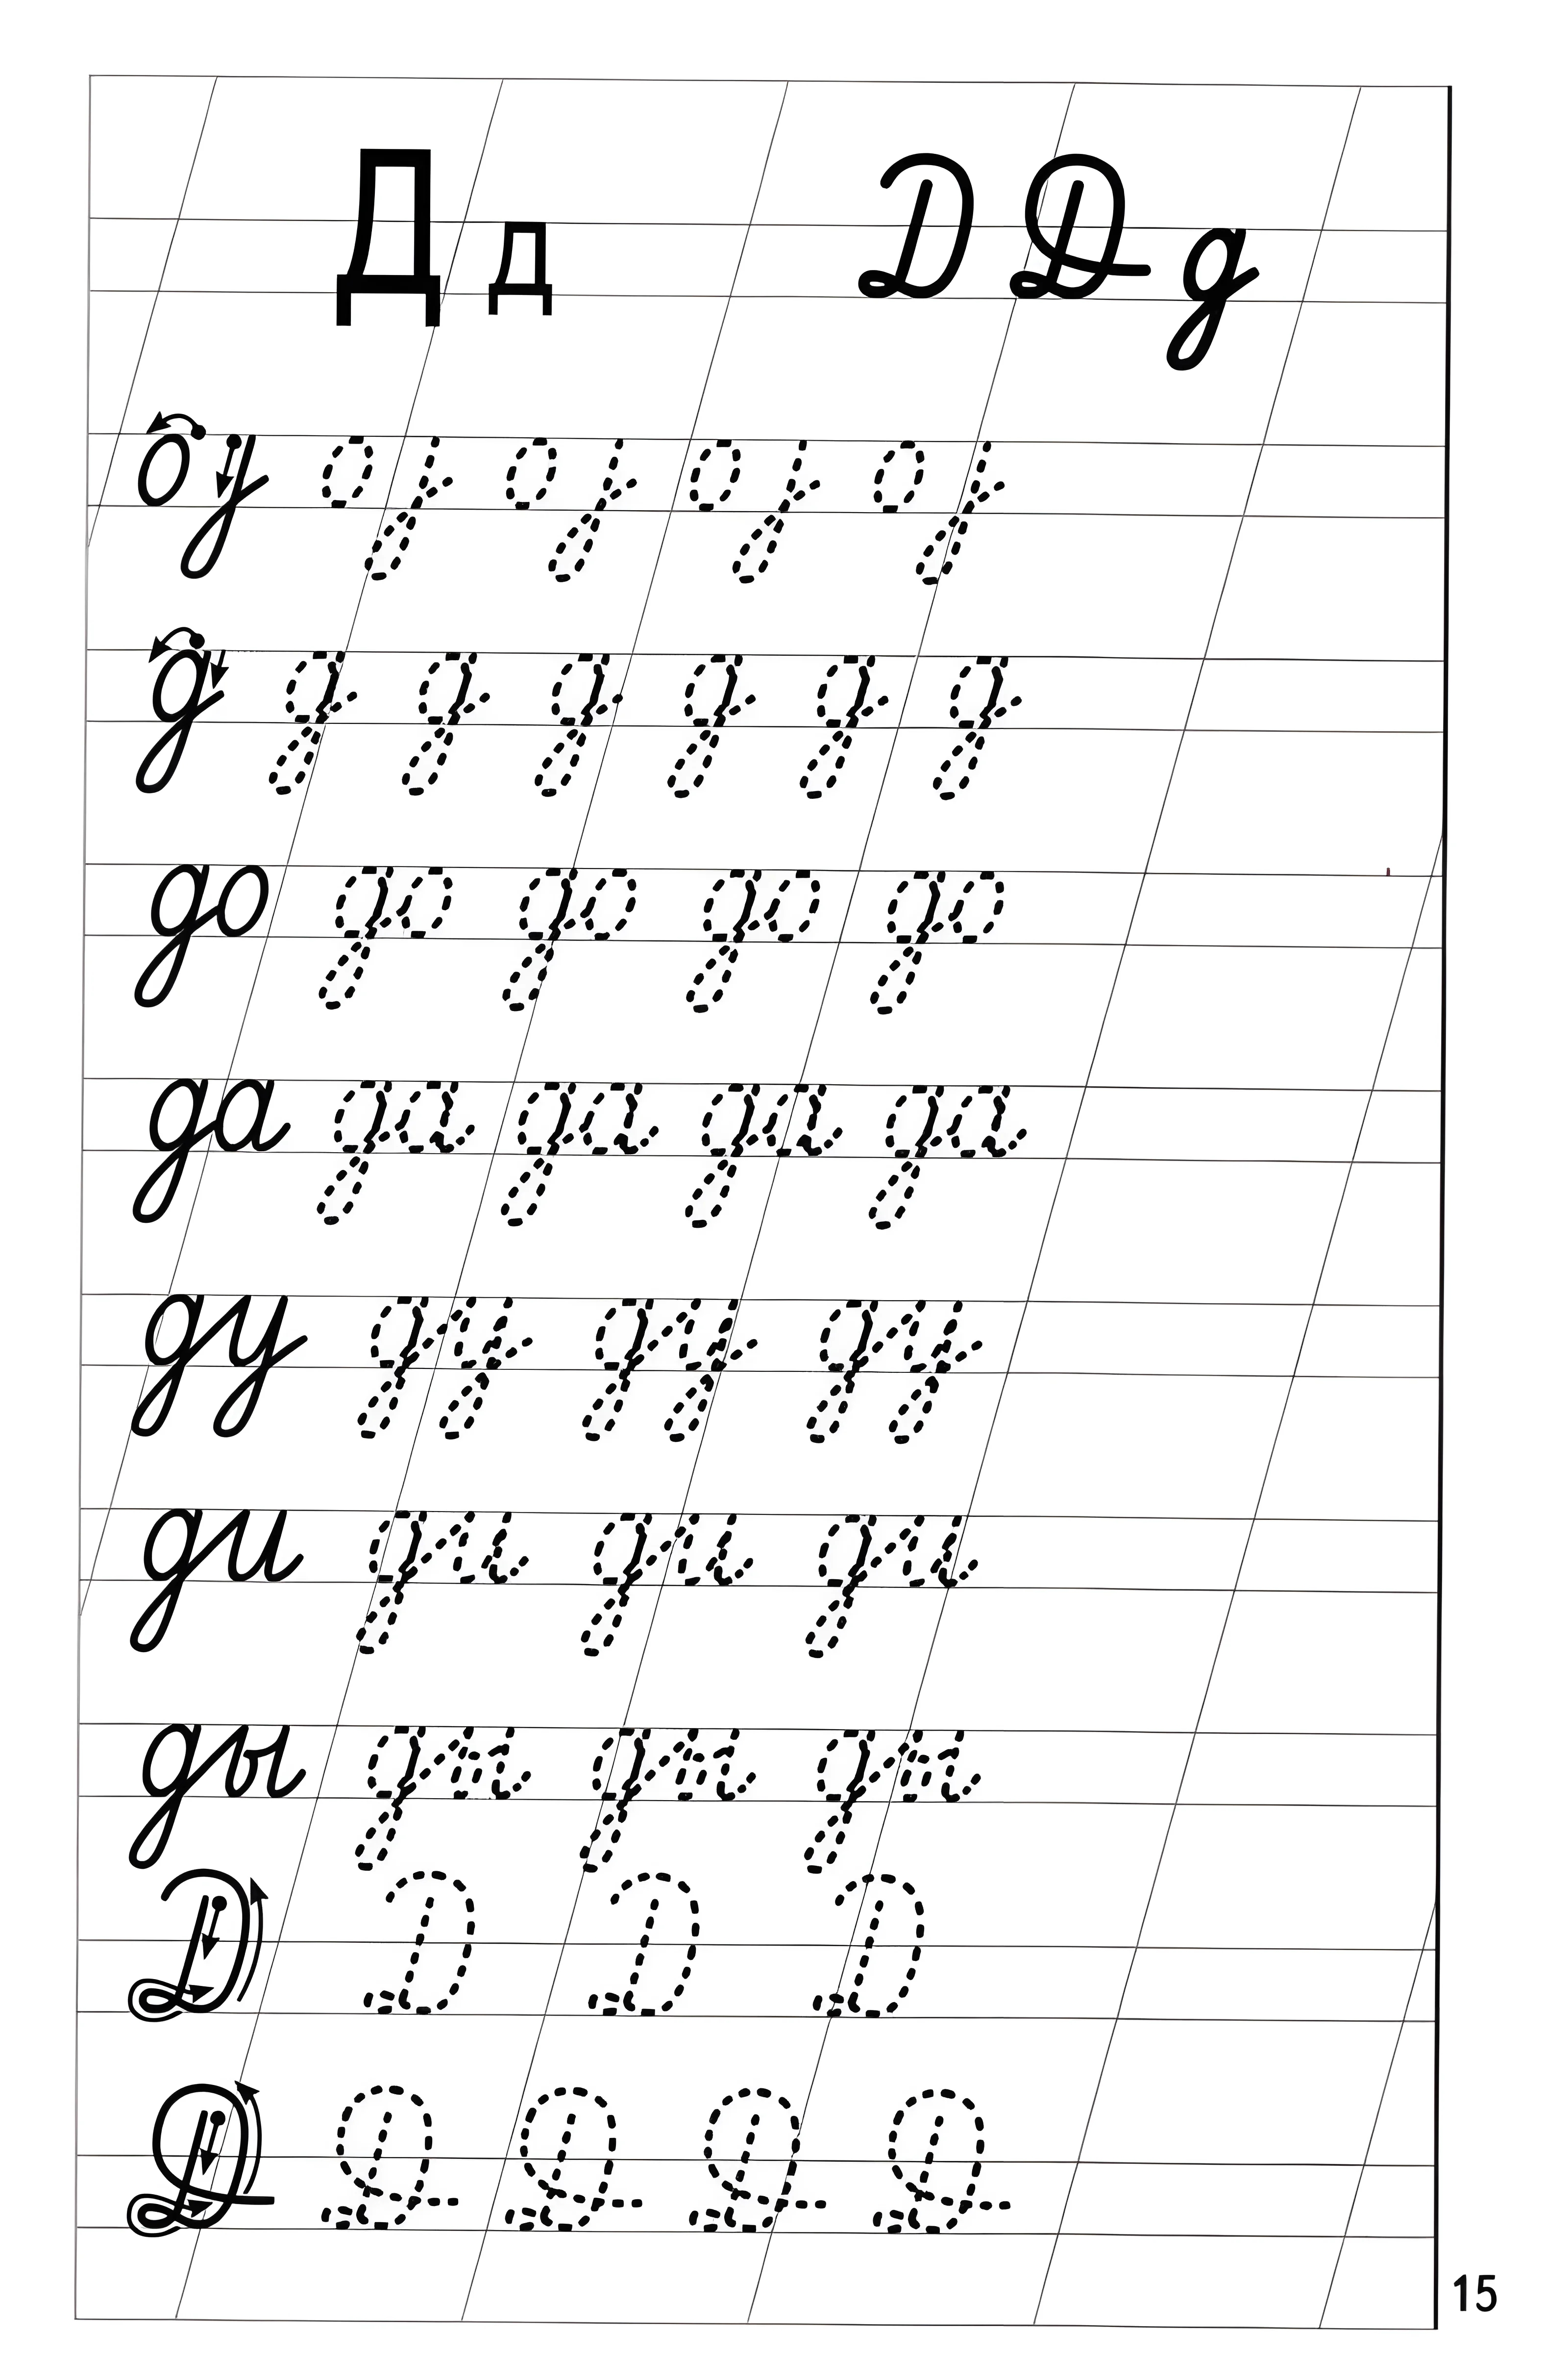 Д д Д Д д
о у о у о у о у о у
д д д д д д д
до до до до до
да да да да да
ду ду ду ду
ди ди ди ди
ды ды ды ды
Д Д Д Д
Д Д Д Д Д
15